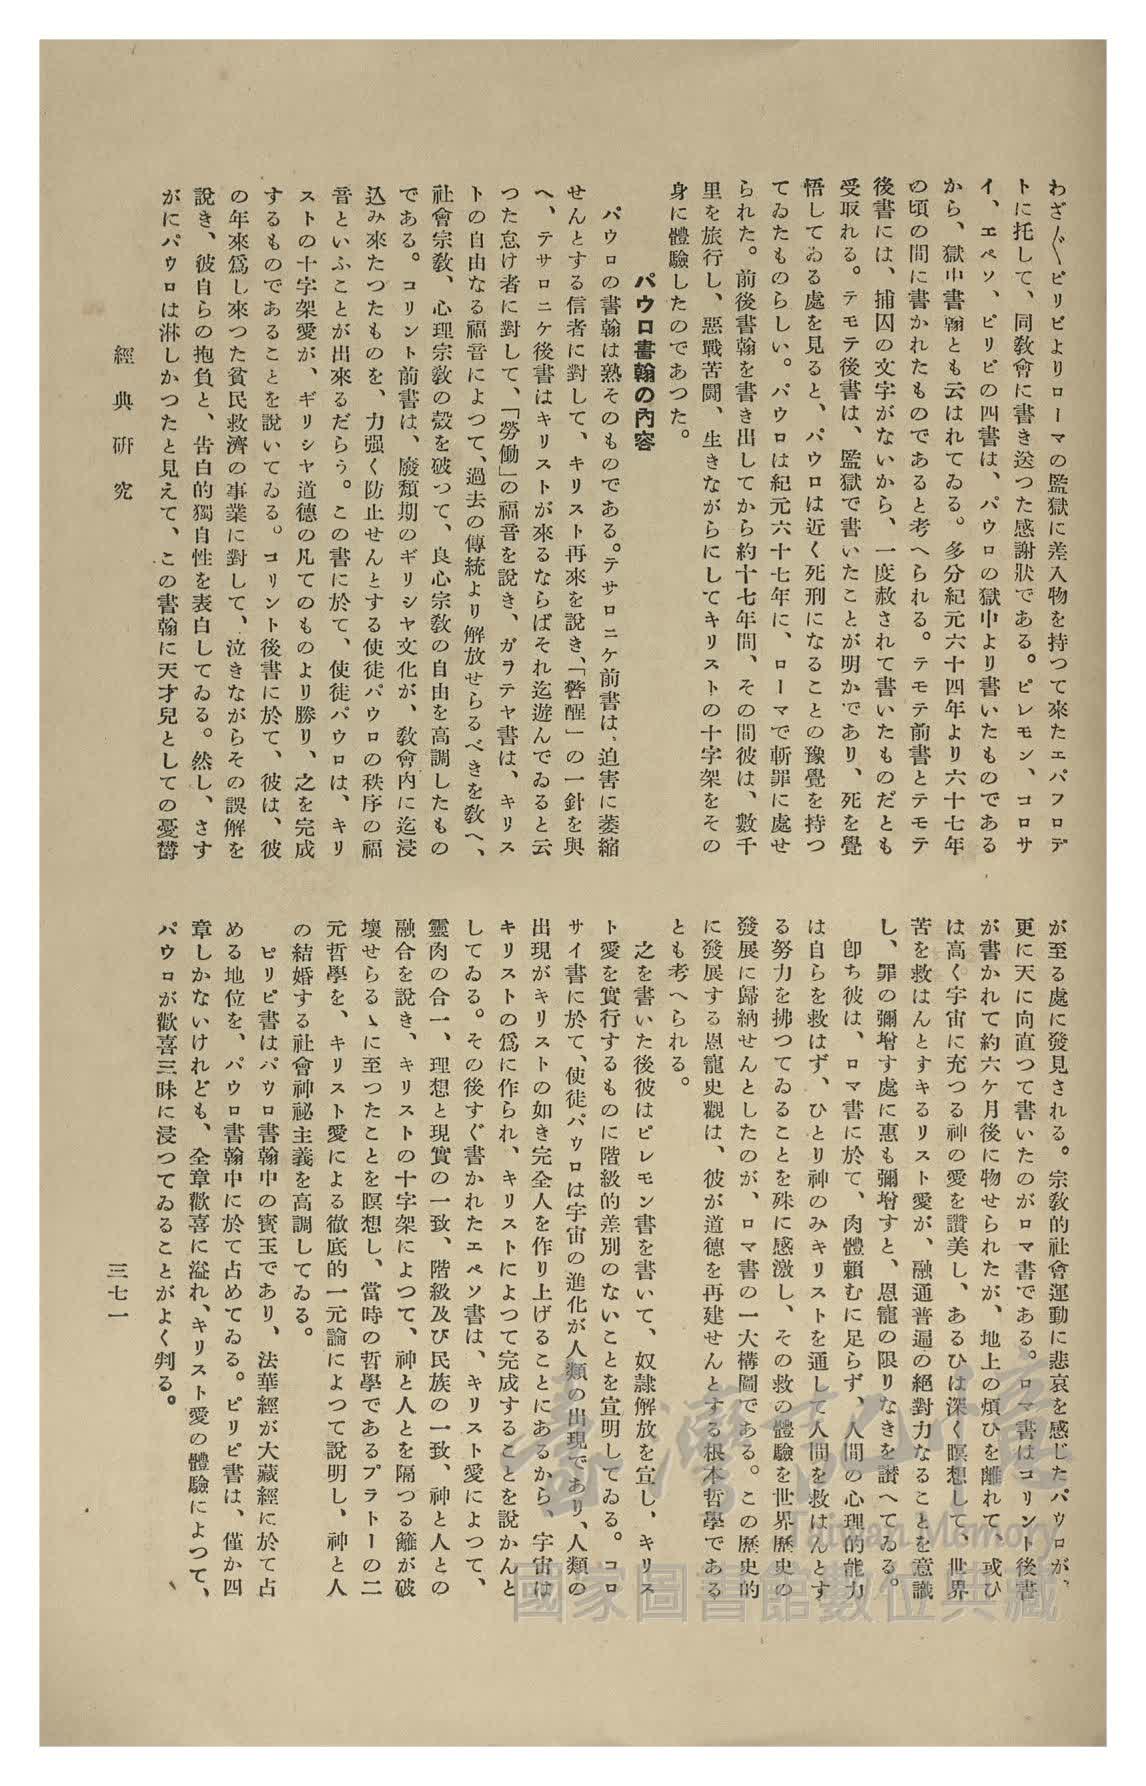 わざ〲ピリピよりローマの監獄に差入物を持つて來たエパフロデ
トに托して、同敎會に書き送つた感謝狀である。ピレモン、コロサ
イ、エペソ、ピリピの四書は、パウロの獄中より書いたものである
から、獄中書翰とも云はれてゐる。多分紀元六十四年より六十七年
の頃の間に書かれたものであると考へられる。テモテ前書とテモテ
後書には、捕囚の文字がないから、一度赦されて書いたものだとも
受取れる。テモテ後書は、監獄で書いたことが明かであり、死を覺
悟してゐる處を見ると、パウロは近く死刑になることの豫覺を持つ
てゐたものらしい。パウロは紀元六十七年に、ローマで斬罪に處せ
られた。前後書翰を書き出してから約十七年間、その間彼は、數千
里を旅行し、惡戰苦鬪、生きながらにしてキリストの十字架をその
身に體驗したのであつた。
パウロ書翰の內容
パウロの書翰は熟そのものである。テサロニケ前書は、迫害に萎縮
せんとする信者に對して、キリスト再來を說き、「警醒」の一針を與
へ、テサロニケ後書はキリストが來るならばそれ迄遊んでゐると云
つた怠け者に對して、「勞働」の福音を說き、ガラテヤ書は、キリス
トの自由なる福音によつて、過去の傳統より解放せらるべきを敎へ、
社會宗敎、心理宗敎の殼を破つて、良心宗敎の自由を高調したもの
である。コリント前書は、廢頽期のギリシヤ文化が、敎會內に迄浸
込み來たつたものを、力强く防止せんとする使徒パウロの秩序の福
音といふことが出來るだらう。この書に於て、使徒パウロは、キリ
ストの十字架愛が、ギリシヤ道德の凡てのものより勝り、之を完成
するものであることを說いてゐる。コリント後書に於て、彼は、彼
の年來爲し來つた貧民救濟の事業に對して、泣きながらその誤解を
說き、彼自らの抱負と、告白的獨自性を表白してゐる。然し、さす
がにパウロは淋しかつたと見えて、この書翰に天才兒としての憂鬱
が至る處に發見される。宗敎的社會運動に悲哀を感じたパウロが、
更に天に向直つて書いたのがロマ書である。ロマ書はコリント後書
が書かれて約六ケ月後に物せられたが、地上の煩ひを離れて、或ひ
は高く宇宙に充つる神の愛を讚美し、あるひは深く瞑想して、世界
苦を救はんとすキるリスト愛が、融通普遍の絕對力なることを意識
し、罪の彌增す處に惠も彌增すと、恩寵の限りなきを讃へてゐる。
卽ち彼は、ロマ書に於て、肉體賴むに足らず、人間の心理的能力
は自らを救はず、ひとり神のみキリストを通して人間を救はんとす
る努力を拂つてゐることを殊に感激し、その救の體驗を世界歷史の
發展に歸納せんとしたのが、ロマ書の一大構圖である。この歷史的
に發展する恩寵史觀は、彼が道德を再建せんとする根本哲學である
とも考へられる。
之を書いた後彼はピレモン書を書いて、奴隷解放を宣し、キリス
ト愛を實行するものに階級的差別のないことを宣明してゐる。コロ
サイ書に於て、使徒パウロは宇宙の進化が人類の出現であり、人類の
出現がキリストの如き完全人を作り上げることにあるから、宇宙は
キリストの爲に作られ、キリストによつて完成することを說かんと
してゐる。その後すぐ書かれたエペソ書は、キリスト愛によつて、
靈肉の合一、理想と現實の一致、階級及び民族の一致、神と人との
融合を說き、キリストの十字架によつて、神と人とを隔つる籬が破
壞せらるゝに至つたことを瞑想し、當時の哲學であるプラトーの二
元哲學を、キリスト愛による徹底的一元論によつて說明し、神と人
の結婚する社會神祕主義を高調してゐる。
ピリピ書はパウロ書翰中の寶玉であり、法華經が大藏經に於て占
める地位を、パウロ書翰中に於て占めてゐる。ピリピ書は、僅か四
章しかないけれども、全章歡喜に溢れ、キリスト愛の體驗によつて、
パウロが歡喜三昧に浸つてゐることがよく判る。
經典硏究
三七一
臺灣記憶
Taiwan Memory
國家圖書館數位典藏